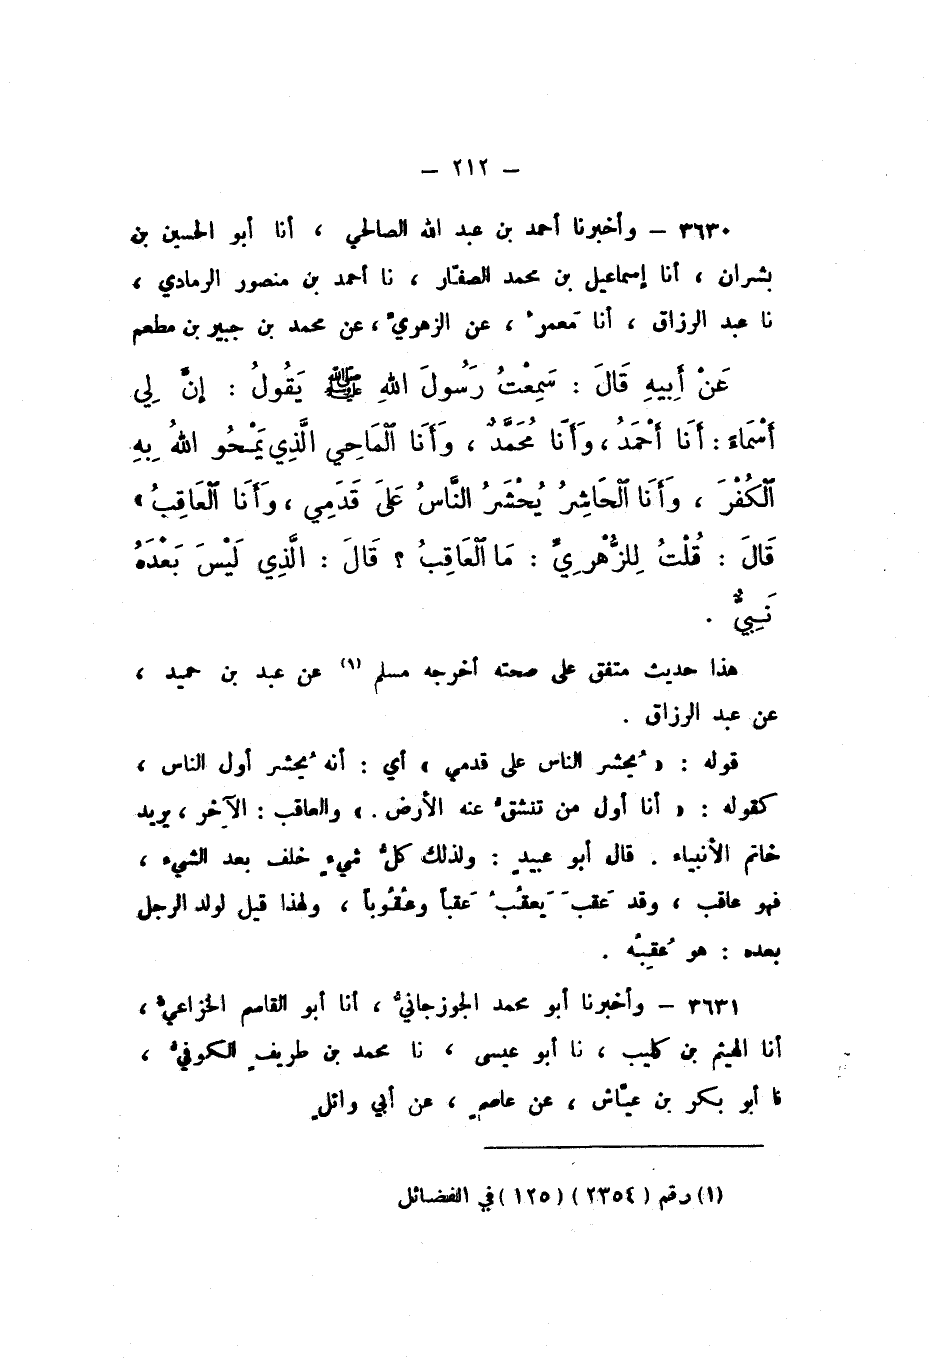 — ٢١٢ —
٣٦٣٠ — وأخبرنا أحمد بن عبد الله الصالحي ، أنا أبو الحسين بن
بشران ، أنا إسماعيل بن محمد الصفّار ، نا أحمد بن منصور الرمادي ،
نا عبد الرزاق ، أنا مَعمرٌ ، عن الزهريِّ ، عن محمد بن جبير بن مطعم
عَنْ أَبِيهِ قَالَ : سَمِعْتُ رَسُولَ اللهِ ﷺ يَقُولُ : إِنَّ لِي
أَسْمَاءَ : أَنَا أَحْمَدُ ، وَأَنَا مُحَمَّدٌ ، وَأَنَا ٱلْمَاحِي الَّذِي يَمْحُو اللهُ بِهِ
ٱلْكُفْرَ ، وَأَنَا ٱلْحَاشِرُ يُحْشَرُ النَّاسُ عَلَى قَدَمِي ، وَأَنَا ٱلْعَاقِبُ »
قَالَ : قُلْتُ لِلزُّهْرِيِّ : مَا ٱلْعَاقِبُ ؟ قَالَ : الَّذِي لَيْسَ بَعْدَهُ
نَبِيٌّ .
هذا حديث متفق على صحته أخرجه مسلم (١) عن عبد بن حميد ،
عن عبد الرزاق .
قوله : « يُحشر الناس على قدمي » أي : أنه يُحشر أول الناس ،
كقوله : « أنا أول من تنشقُّ عنه الأرض . » والعاقب : الآخِر ، يريد
خاتم الأنبياء . قال أبو عبيدٍ : ولذلك كلُّ شيءٍ خلف بعد الشيء ،
فهو عاقب ، وقد عَقبَ يَعقُبُ عَقباً وعُقُوباً ، ولهذا قيل لولد الرجل
بعده : هو عَقِبُه .
٣٦٣١ — وأخبرنا أبو محمد الجوزجانيُّ ، أنا أبو القاسم الخزاعيُّ ،
أنا الهيثم بن كليب ، نا أبو عيسى ، نا محمد بن طريفٍ الكوفيُّ ،
نا أبو بكر بن عيّاش ، عن عاصمٍ ، عن أبي وائلٍ
(١) رقم ( ٢٣٥٤ ) ( ١٢٥ ) في الفضائل